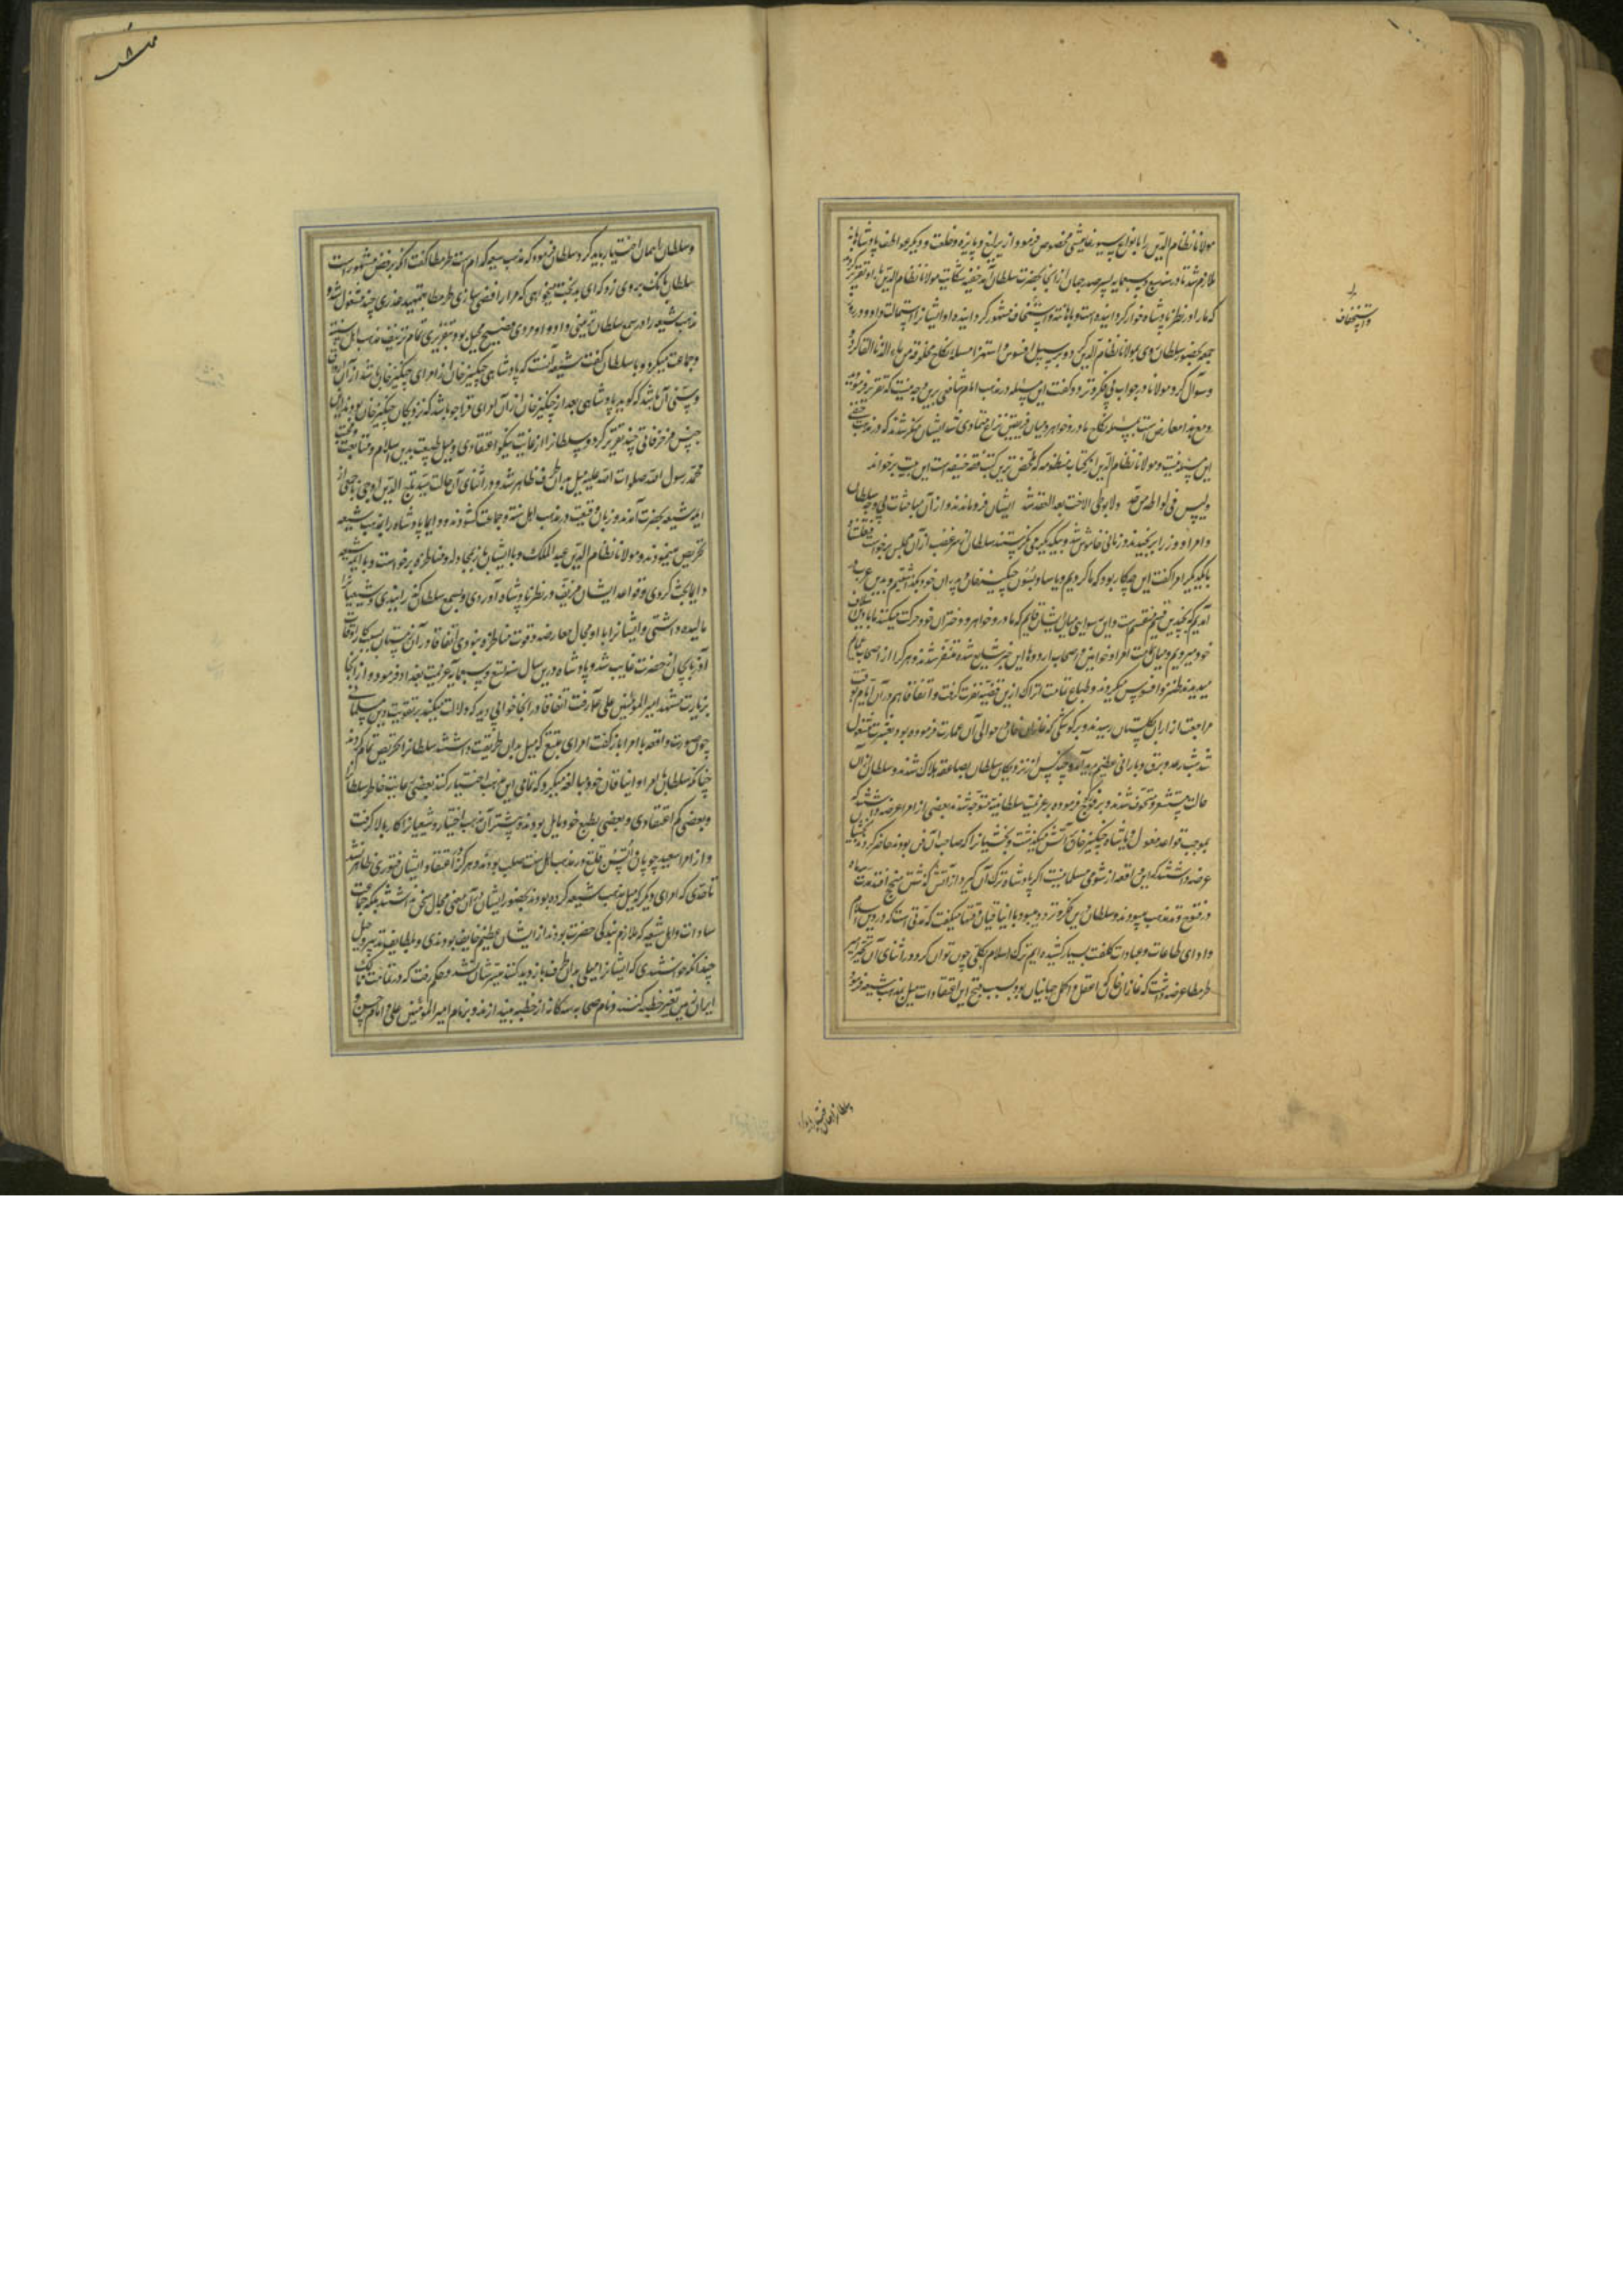 مولانا نظام الدین را بانواع سیورغامیشی مخصوص فرمود و از یرلیغ و پایزه و خلعت و دیگر عواطف پادشاهانه
ملازم شد تا در سنه سبع و سبعمایه پسر صدر جهان از بخارا بحضرت سلطان آمد خفیه شکایت مولانا نظام الدین با او تقریر کردند
که ما را در نظر پادشاه خوار گردانیده است و باهانت و استخفاف مشهور گردانیده او ایشانرا استمالت داد و در روز
جمعه بحضور سلطان روی بمولانا نظام الدین کرد و بر سبیل افسوس و استهزا مسله نکاح مخلوقه من ماء الزنا القا کرد و
وسوآل کرد مولانا در جواب بی فکر و تردد گفت این مسئله در مذهب امام شافعی برین وجه نیست که تقریر فرمودند
و مع هذا معارض است بمسئله نکاح مادر و خواهر و میان فریقین نزاع متمادی شد ایشان منکر شدند که در مذهب حنفی
این مسئله نیست و مولانا نظام الدین از کتاب منظومه که ملخص ترین کتب فقه حنیفه است این بیت برخواند
ولیس فی لواطه من حد ولا بوطی الاخت بعد العقد شد ایشان فرو ماندند و از آن مباحثات بی وجه سلطان
و امرا و وزرا برنجیدند و زمانی خاموش شده بیکدیگر می نگریستند سلطان از سر غضب از آن مجلس برخواست قتلغشاه
با یکدیگر امرا گفت این چه کار بود که ما کردیم و یاساو یسون چنگیز خان و پدران خود بگذاشتیم و بدین عرب در
آمدیم که بچندین قسم منقسم است و این رسوایی میان ایشان قایم که مادر و خواهر و دختران خود حرکت میکنند ما با دین اسلاف
خود میرویم و میان تمامت امرا و خواتین و اصحاب اردوها این خبر شایع شده متنفر شدند و هر کرا از اصحاب عمایم
میدیدند طنز و افسوس میکردند و طباع تمامت اتراک ازین قضیه نفرت گرفت و اتفاقا هم در آن ایام بوقت
مراجعت از اران بگلستان رسیدند و بر کوشکی که غازان خان در حوالی آن عمارت فرموده بود بعشرت مشغول
شد شب رعد و برق و بارانی عظیم پدید آمد و چند کس از نزدیکان سلطان بصاعقه هلاک شدند و سلطان از آن
حالت مستشعر و متخوف شدند و بر فور کوچ فرموده بر عزیمت سلطانیه متوجه شدند بعضی از امرا عرضه داشتند که
بموجب قواعد مغول و یاساء چنگیز خان بر آتش میباید گذشت و بخشیانرا که صاحب آن فن بودند حاضر کردند بخشیان
عرضه داشتند که این واقعه از شومی مسلمانیست اگر پادشاه ترک آن گیرد از آتش گذشتن منجح افتد مدت سه ماه
در فتوح و تذبذب میبودند و سلطان درین فکر و تردد میبود با ایناقان وقتها میگفت که مدتی است که در دین اسلام
و ادای طاعات و عبادات کلفت بسیار کشیده ایم ترک اسلام بکلی چون توان کرد و در اثنای آن تحیر امیر
طرمطاز عرضه داشت که غازان خان که اعقل و اکمل جهانیان بود بسبب قبح این اعتقادات میل بمذهب شیعه فرمود
و استخفاف
و سلطانرا همان اختیار باید کرد
و سلطانرا همان اختیار باید کرد و سلطان فرمود که مذهب شیعه کدام است طرمطاز گفت آنکه برفض مشهور است
سلطان بانگ بر وی زد که ای بدبخت میخواهی که مرا رافضی سازی طرمطاز بتمهید عذری چند مشغول شد و
مذهب شیعه را در سمع سلطان تزیینی داد و او مردی فصیح محیل بود بتقریری تمام تزییف مذهب اهل سنت
و جماعت میکرد و با سلطان گفت شیعه آنست که پادشاهی چنگیز خان از امرای چنگیز خان باشد از آن اروق او
و سنی آن باشد که گوید پادشاهی بعد از چنگیز خان از آن امرای قراجو باشد که نزدیکان چنگیز خان بودند ازین
جنس مزخرفاتی چند تقریر کرد و سلطانرا از غایت نیکو اعتقادی و میل طبیعت بدین اسلام و متابعت و محبت
محمد رسول الله صلوات الله علیه میل بدان طرف ظاهر شد و در اثنای آن حالت سید تاج الدین آوجی با جمعی از
ایمه شیعه بحضرت آمدند و زبان وقیعت در مذهب اهل سنت و جماعت گشودند و دایما پادشاه را بمذهب شیعه
تحریض مینمودند و مولانا نظام الدین عبد الملک و با ایشان بمجادله و مناظره برخواست و با ایمه شیعه
دایما بحث کردی و قواعد ایشان مزیف در نظر پادشاه آوردی و بسمع سلطان رسانیدی و شیعیانرا
مالیده داشتی و ایشانرا با او مجال معارضه و قوت مناظره نبودی اتفاقا در آن زمستان بسبب کار اوقاف
آذربایجان از حضرت غایب شد و پادشاه درین سال سنه تسع و سبعمایه عزیمت بغداد فرمود و از آنجا
بزیارت مشهد امیر المؤمنین علی علیه رفت اتفاقا در آنجا خوابی دید که دلالت میکند بر تقویت دین مسلمانی
چون صورت واقعه با امرا باز گفت امرای متبع که میل بدان طریقت داشتند سلطانرا تحریض تمام کردند
چنانکه سلطان با امرا و ایناقان خود مبالغه میکرد که تمامی این مذهب اختیار کنند بعضی رعایت خاطر سلطانرا
و بعضی کم اعتقادی و بعضی بطبع خود مایل بودند و بیشتر آن مذهب اختیار و شیعیانرا کار بالا گرفت
و از امرا سعید چوپان و ایسن قتلغ در مذهب اهل سنت صلب بودند و هرگز در اعتقاد ایشان فتوری ظاهر نشد
تا حدی که امرای دیگر که میل مذهب شیعه کرده بودند بحضور ایشان از آن معنی مجال سخن نداشتند بلکه جماعت
سادات و اهل شیعه که ملازم بندگی حضرت بودند از ایشان عظیم خایف بودندی و بلطایف تدبیر و حیل
چندانکه خواستندی که ایشانرا میلی بدان طرف بازدید کنند میسرشان نشد و حکم رفت که در تمامت ممالک
ایران زمین تغییر خطبه کنند و نام صحابه سه گانه از خطبه بیندازند و بر نام امیر المؤمنین علی و امام حسن و